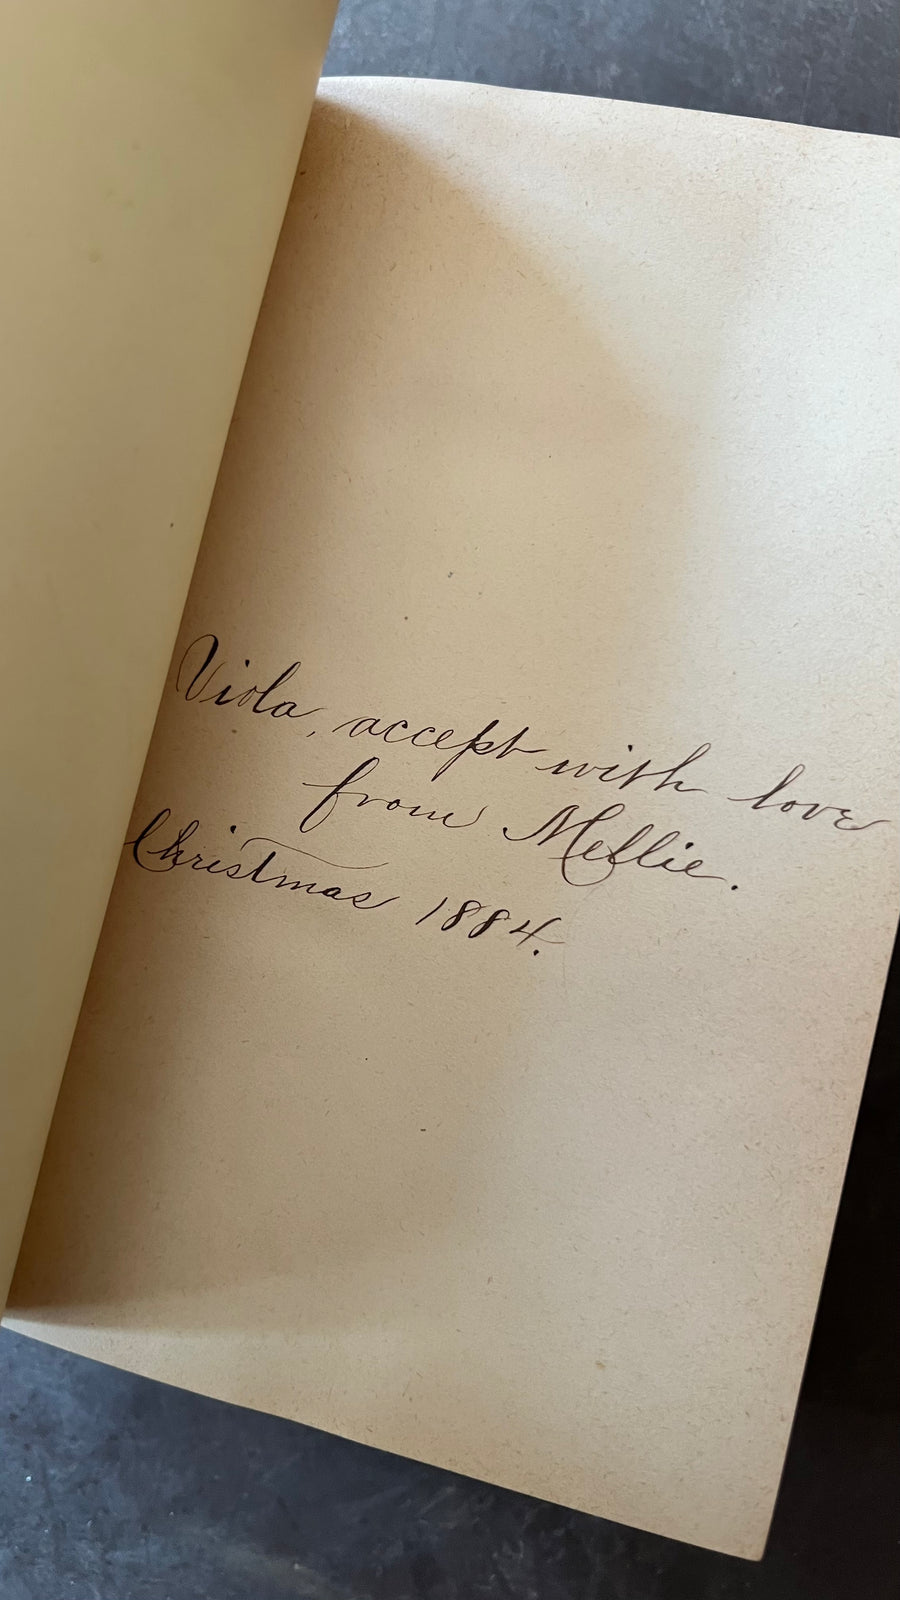 Viola, accept with love
from Mellie.
Christmas 1884.